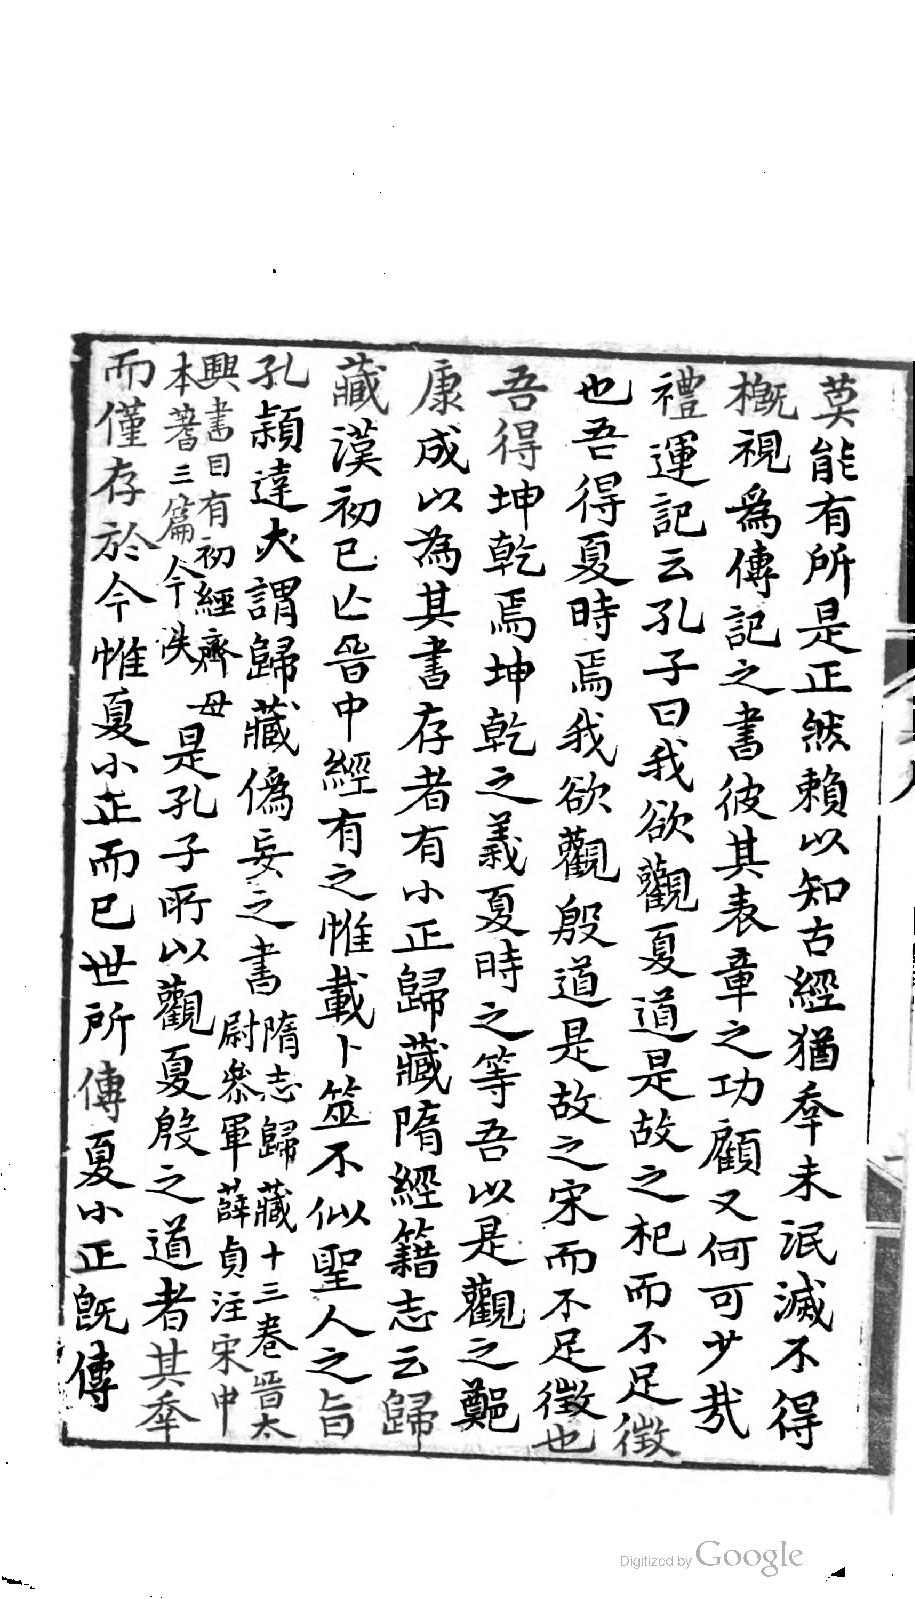 莫能有所是正然賴以知古經猶夆未泯滅不得
概視爲傳記之書彼其表章之功顧又何可少哉
禮運記云孔子曰我欲觀夏道是故之杞而不足徵
也吾得夏時焉我欲觀殷道是故之宋而不足徵也
吾得坤乾焉坤乾之義夏時之等吾以是觀之鄭
康成以為其書存者有小正歸藏隋經籍志云歸
藏漢初已亾晉中經有之惟載卜筮不似聖人之旨
孔頴達大謂歸藏僞妄之書隋志歸藏十三巻晉太
尉叅軍薛貞注宋中
興書目有初經齊母
本蓍三篇今泆
是孔子所以觀夏殷之道者其夆
而僅存於今惟夏小正而已世所傳夏小正旣傳
Digitized by Google